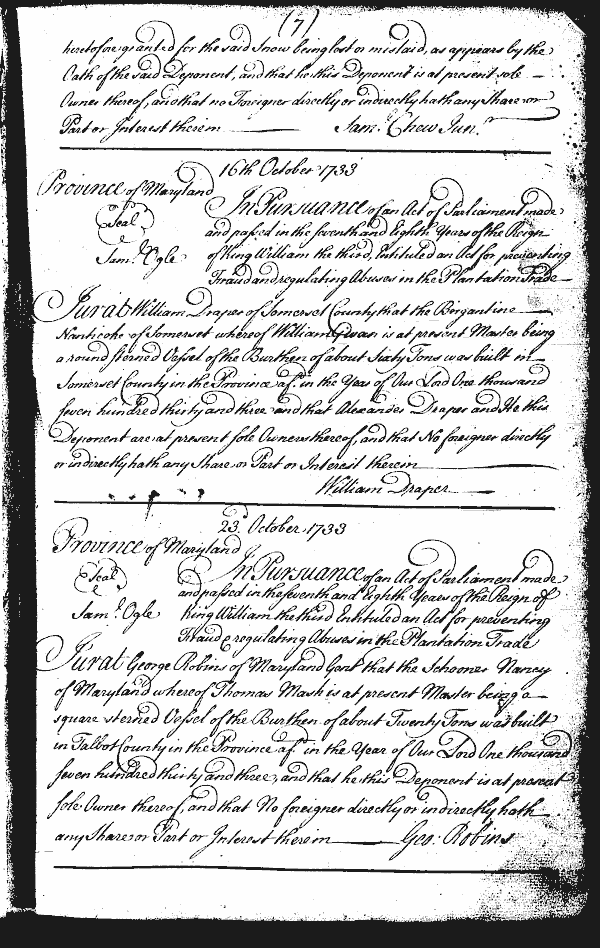 (7)
heretofore granted for the said Snow being lost or mislaid, as appears by the
Oath of the said Deponent, and that he this Deponent is at present sole
Owner thereof, and that no Foreigner directly or indirectly hath any Share or
Part or Interest therein Sam.l Chew Jun.r
16th October 1733
Province of Maryland
In Pursuance of an Act of Parliament made
Seal
and passed in the seventh and Eighth Years of the Reign
Sam.l Ogle
of King William the third, Entituled an Act for preventing
Fraud and regulating Abuses in the Plantation Trade
Jurat William Draper of Somerset County that the Brigantine
Nanticoke of Somerset whereof William Givan is at present Master being
a round sterned Vessel of the Burthen of about Sixty Tons was built in
Somerset County in the Province afd. in the Year of Our Lord One thousand
Seven hundred thirty and three and that Alexander Draper and He this
Deponent are at present sole Owners thereof, and that No foreigner directly
or indirectly hath any Share or Part or Interest therein
William Draper
23d October 1733
Province of Maryland
In Pursuance of an Act of Parliament made
Seal
and passed in the seventh and Eighth Years of the Reign of
Sam.l Ogle
King William the third Entituled an Act for preventing
Fraud & regulating Abuses in the Plantation Trade
Jurat George Robins of Maryland Gent that the Schooner Nancy
of Maryland whereof Thomas Mash is at present Master being a
square sterned Vessel of the Burthen of about Twenty Tons was built
in Talbot County in the Province afd. in the Year of Our Lord One thousand
Seven hundred thirty and three, and that he this Deponent is at present
sole Owner thereof, and that No foreigner directly or indirectly hath
any Share or Part or Interest therein Geo: Robins